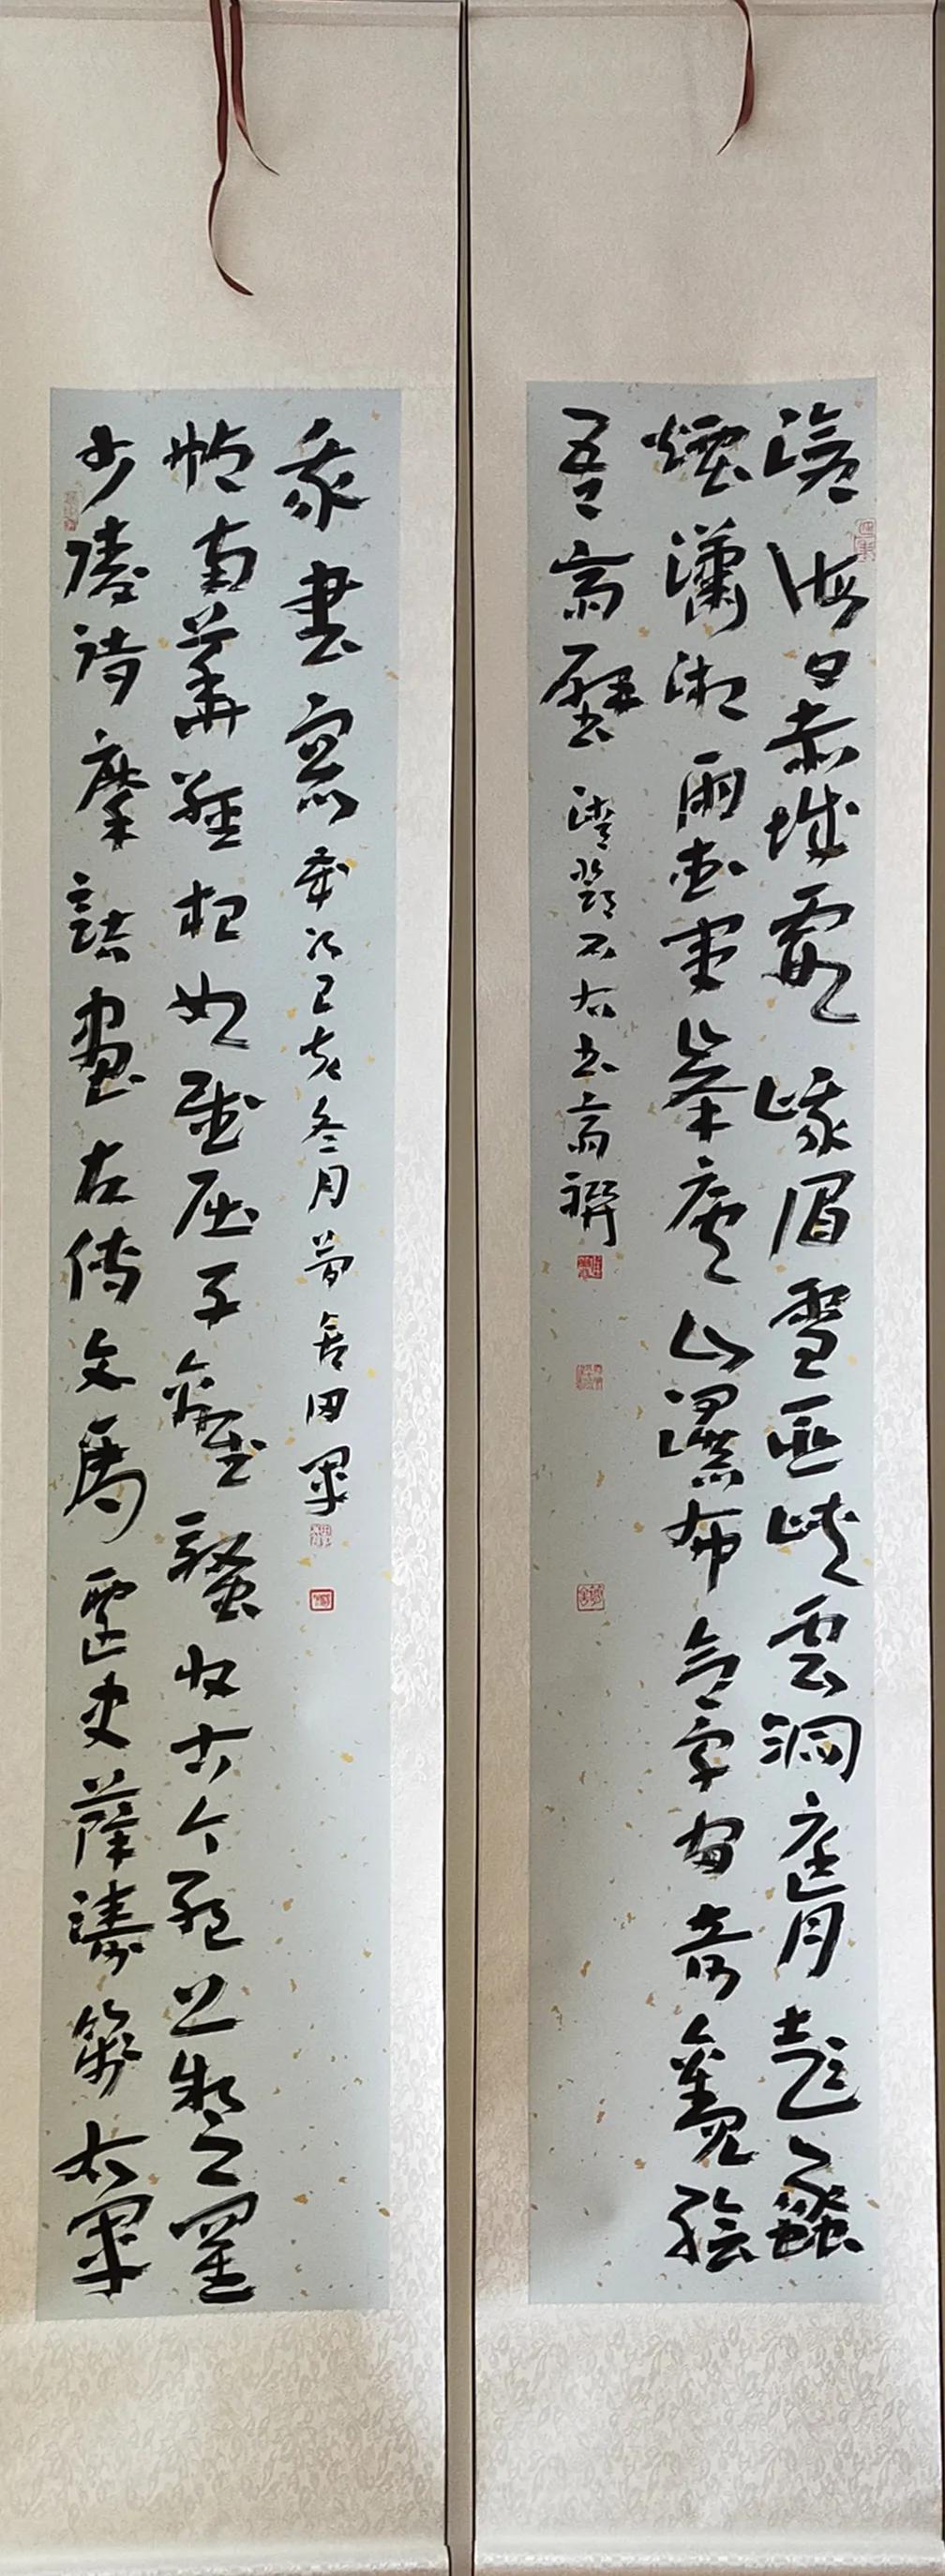 滄海日赤城霞峨眉雪巫峽雲洞庭月彭蠡
煙瀟湘雨武夷峯廬山瀑布合宇宙奇觀繪
吾齋壁 清鄧石如书齋聯
少陵詩摩詰畫左傳文馬遷史薛濤箋右軍
帖南華經相如賦屈子離騷收古今絕藝置
我書窗 歲次己亥冬月舍田軍